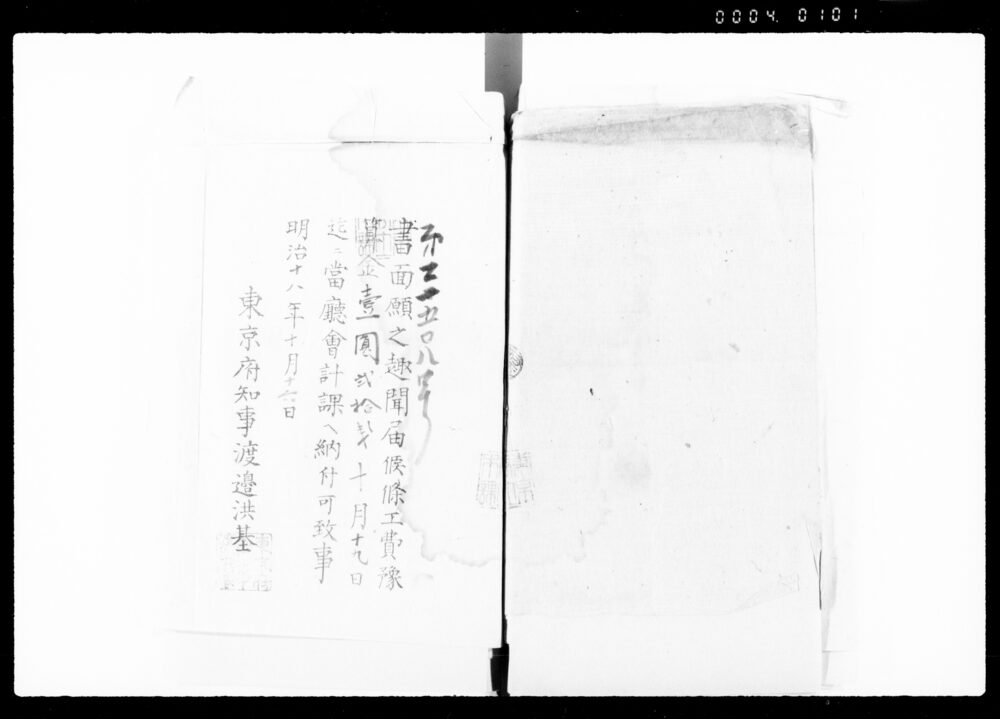 0004 0101
第二一五〇八号
書面願之趣聞届候條工費豫
算金壹圓弐拾弐銭十月十九日
迄ニ當廳會計課ヘ納付可致事
明治十八年十月十六日
東京府知事渡邉洪基